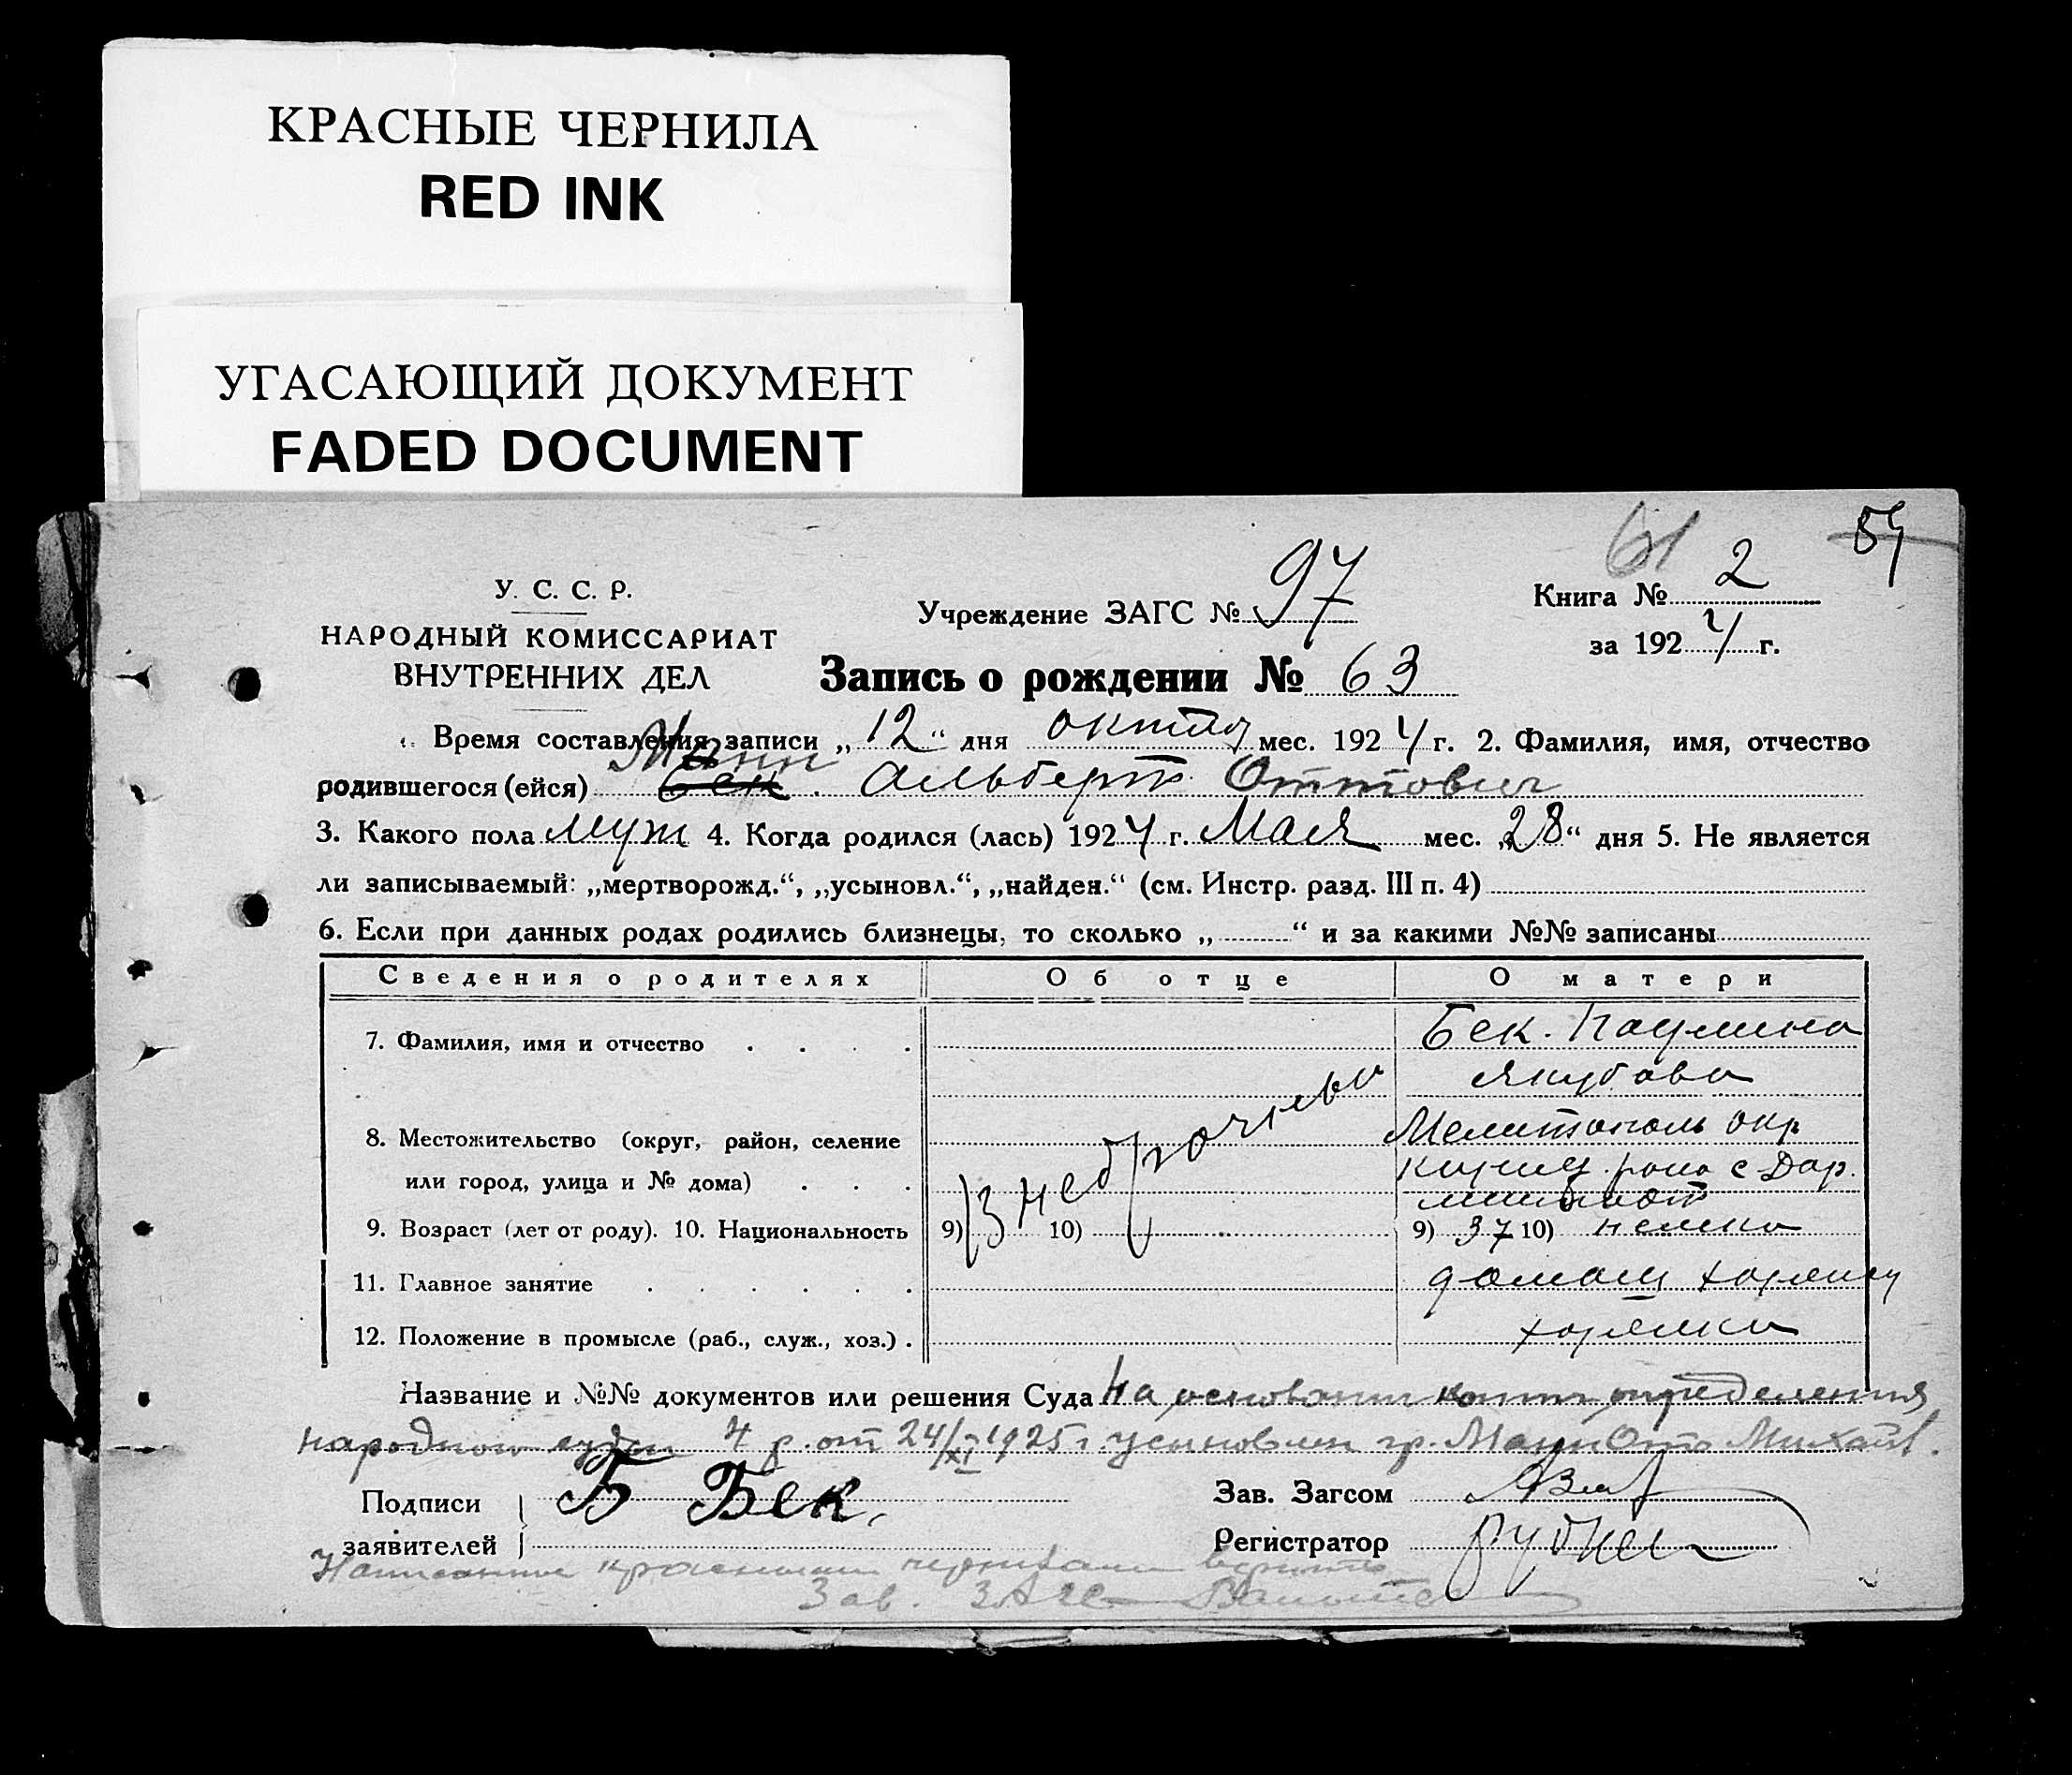 КРАСНЫЕ ЧЕРНИЛА
RED INK
УГАСАЮЩИЙ ДОКУМЕНТ
FADED DOCUMENT
61 59
У. С. С. Р.
НАРОДНЫЙ КОМИССАРИАТ
ВНУТРЕННИХ ДЕЛ
Учреждение ЗАГС № 97
Книга № 2
за 1924 г.
Запись о рождении № 63
Время составления записи „12“ дня октяб мес. 1924 г. 2. Фамилия, имя, отчество
Манн
родившегося (ейся) Бек. Альберт Оттович
3. Какого пола муж 4. Когда родился (лась) 1924 г. Мая мес. „28“ дня 5. Не является
ли записываемый: „мертворожд.“, „усыновл.“, „найден.“ (см. Инстр. разд. III п. 4)
6. Если при данных родах родились близнецы, то сколько „ “ и за какими №№ записаны
Сведения о родителях Об отце О матери
7. Фамилия, имя и отчество Бек. Паулина
Якубовн
8. Местожительство (округ, район, селение Мелитополь окр
или город, улица и № дома) рона с Дар.
9. Возраст (лет от роду). 10. Национальность 9) 10) 9) 37 10) немка
внебрачный
11. Главное занятие домаш хозяйка
12. Положение в промысле (раб., служ., хоз.) хозяйка
Название и №№ документов или решения Суда На основании копии определения
народного суда 4 р. от 24/XI 1925 г. усыновлен гр. Манн Отто Михайл.
Подписи Б Бек. Зав. Загсом
заявителей Регистратор
Написанное красными чернилами верить
Зав. ЗАГС